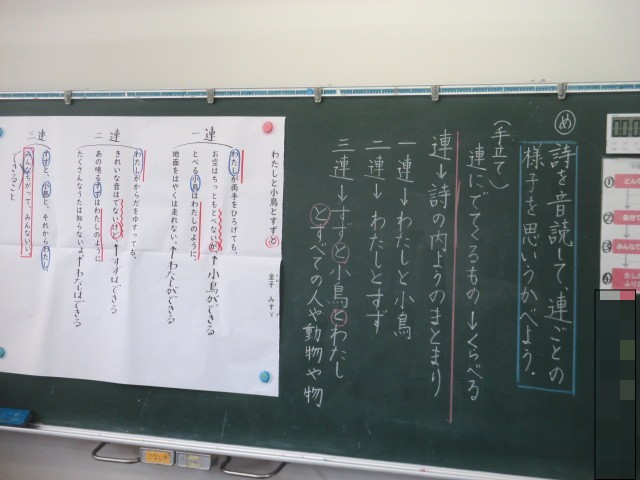 め
詩を音読して、連ごとの
様子を思いうかべよう。
(手立て)
連にでてくるもの→くらべる
連→詩の内ようのまとまり
一連→わたしと小鳥
二連→わたしとすず
三連→すずと小鳥とわたし
とすべての人や動物や物
わたしと小鳥とすずと
金子 みすゞ
一連
わたしが両手をひろげても、
お空はちっともとべないが、↑小鳥ができる
とべる小鳥はわたしのように、
地面をはやくは走れない。↑わたしができる
二連
わたしがからだをゆすっても、
きれいな音はでないけど、↑すずはできる
あの鳴るすずはわたしのように
たくさんなうたは知らないよ。↑わたしはできる
三連
すずと、小鳥と、それからわたし、
みんなちがって、みんないい。
できること